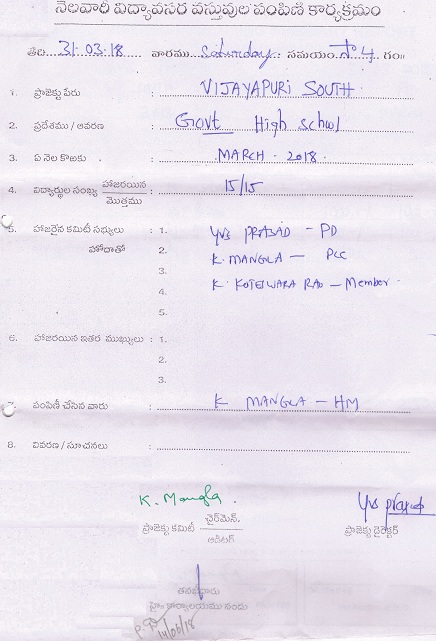 నెలవారీ విద్యావసర వస్తువుల పంపిణీ కార్యక్రమం
తేది 31.03.18 వారము Saturday సమయం సా 4 గం॥
1. ప్రాజెక్టు పేరు : VIJAYAPURI SOUTH
2. ప్రదేశము / ఆవరణ : Govt High school
3. ఏ నెల కొఱకు : MARCH - 2018
4. విద్యార్థుల సంఖ్య హాజరయిన / మొత్తము : 15/15
5. హాజరైన కమిటీ సభ్యులు : 1. YVS PRASAD - PD
హోదాతో 2. K. MANGLA - PCC
3. K. KOTESWARA RAO - Member
4.
5.
6. హాజరయిన ఇతర ముఖ్యులు : 1.
2.
3.
7. పంపిణీ చేసిన వారు : K MANGLA - HM
8. వివరణ / సూచనలు :
K. Mangla. Yvs prasad
ప్రాజెక్టు కమిటీ ఛైర్‌మెన్. / ఆడిటర్ ప్రాజెక్టు డైరెక్టర్
కార్యాలయము నందు
14/06/18